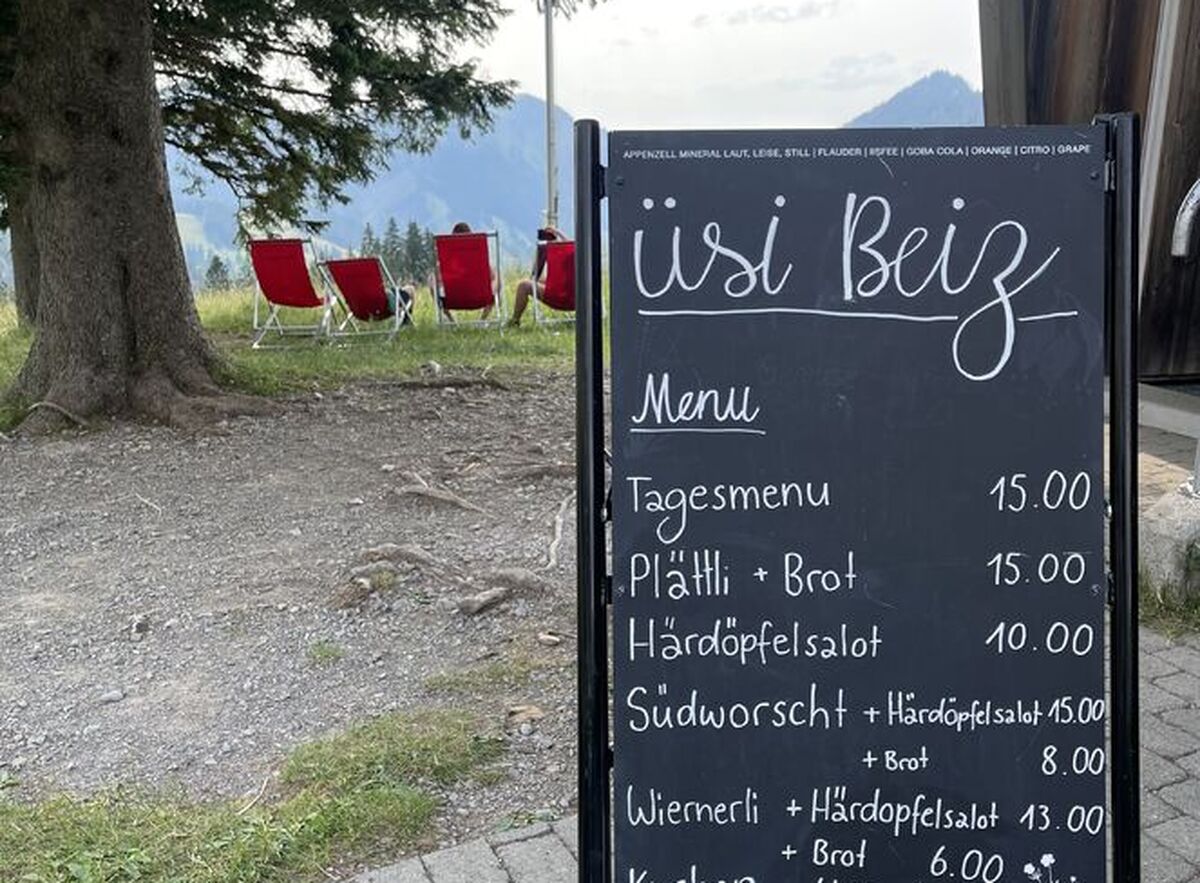 APPENZELL MINERAL LAUT, LEISE, STILL | FLAUDER | IISFEE | GOBA COLA | ORANGE | CITRO | GRAPE
üsi Beiz
Menu
Tagesmenu 15.00
Plättli + Brot 15.00
Härdöpfelsalot 10.00
Südworscht + Härdöpfelsalot 15.00
+ Brot 8.00
Wiernerli + Härdopfelsalot 13.00
+ Brot 6.00